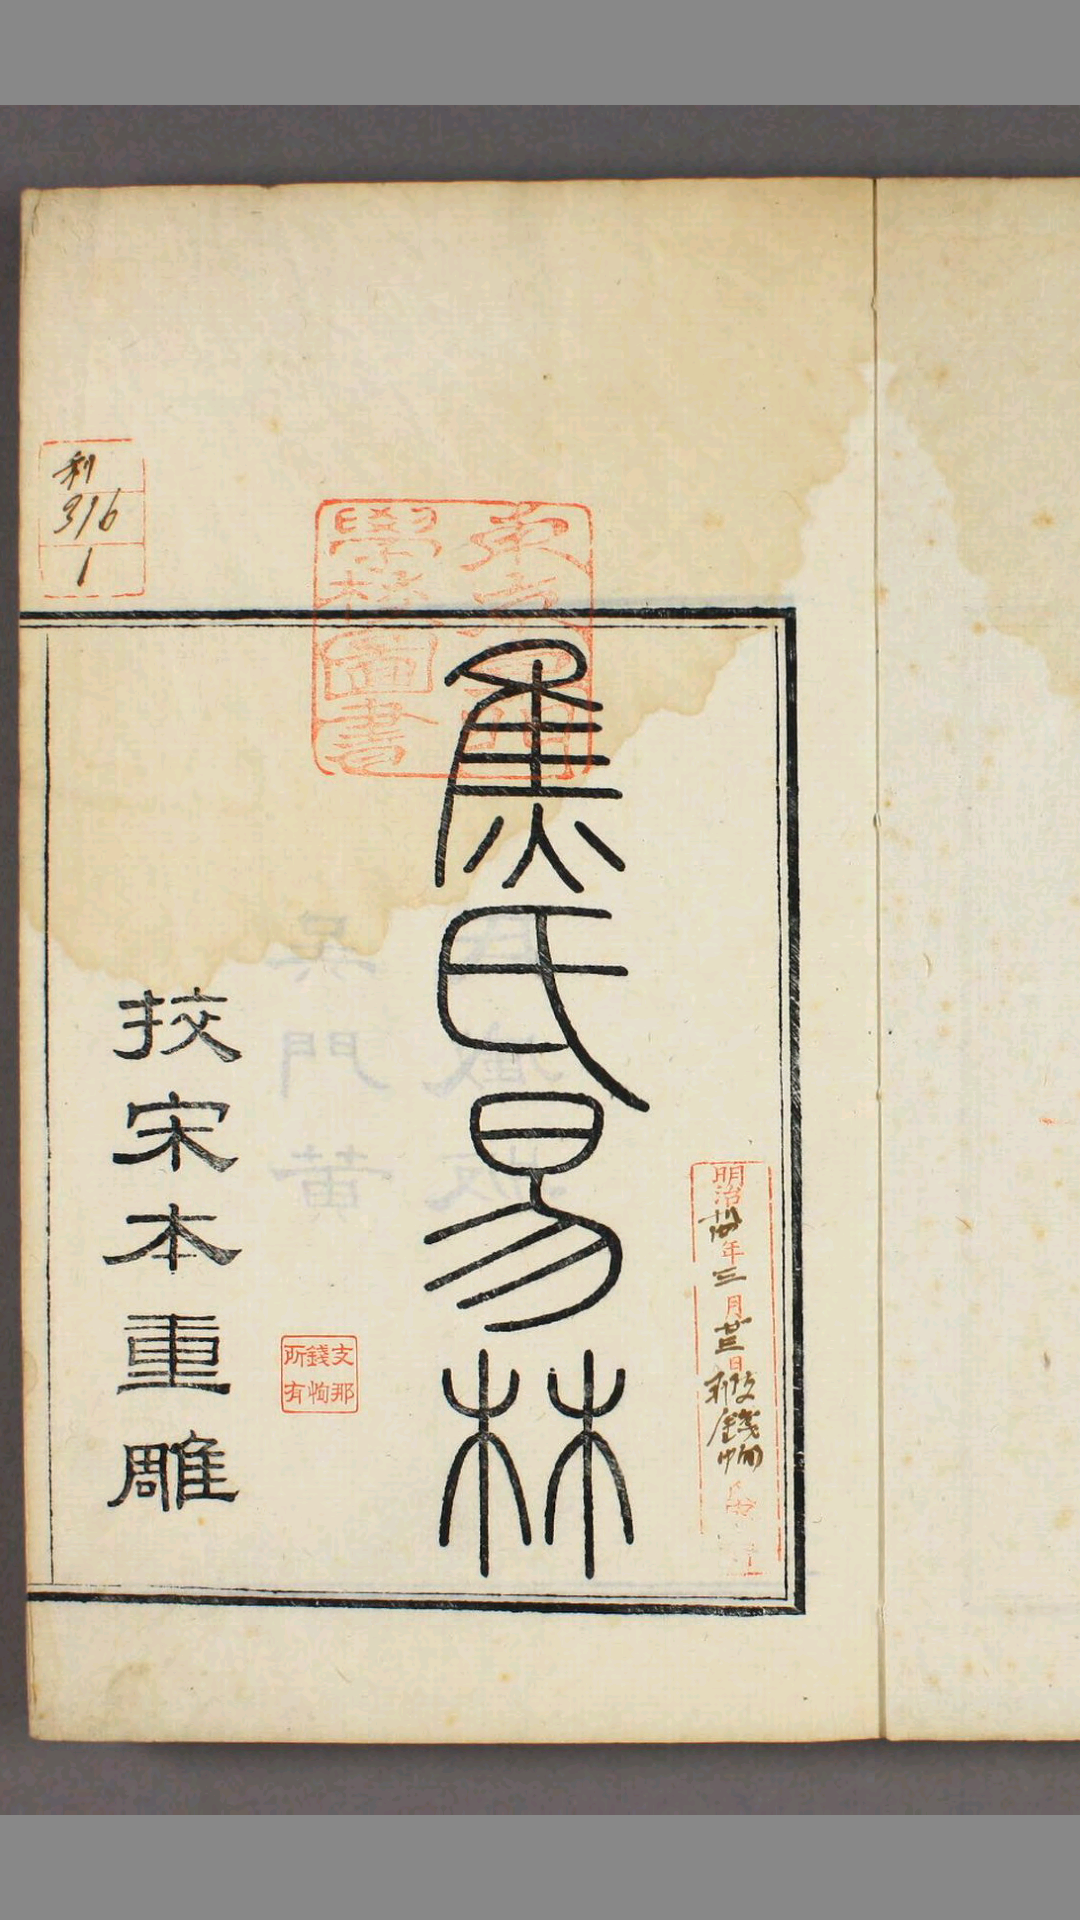 明治卅四年三月廿三日
錢恂
焦氏易林
東京專門
學校圖書
支那
錢恂
所有
挍宋本重雕
利
316
1